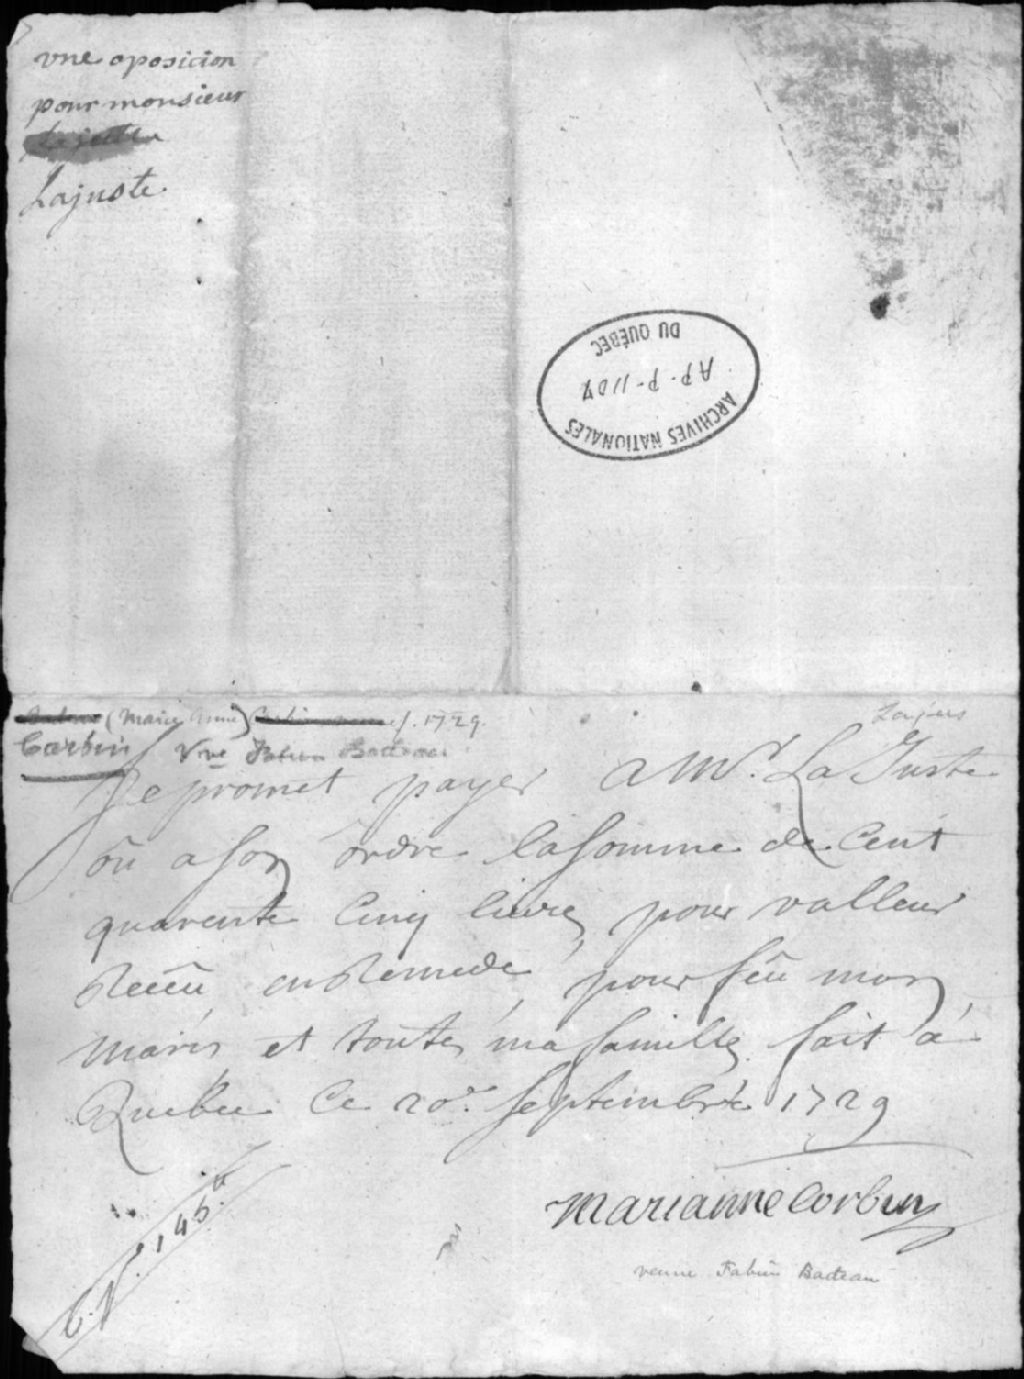 vne oposicion
pour monsieur
Lajuste
ARCHIVES NATIONALES
AP-P-1107
DU QUÉBEC
(Marie Anne) 1729.
Corbin Vve Fabien Badeau
Lajus
Je promet payer a Mr. La Juste
ou a son ordre la somme de Cent
quarente Cinq livres pour valleur
Receu en Remede pour feu mon
maris et toute ma famille fait à
Quebec Ce 20e. Septembre 1729
marianne Corbin
veuve Fabien Badeau
B. P. 145 ₶